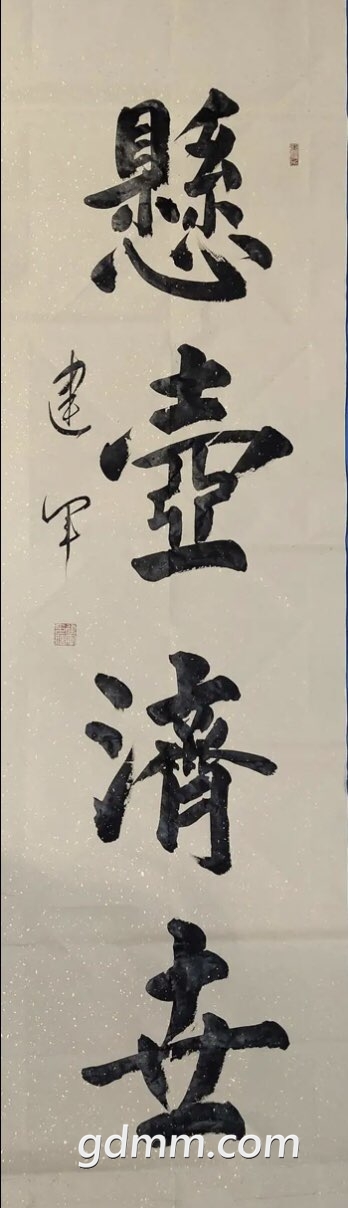 懸壺濟世
建军
gdmm.com